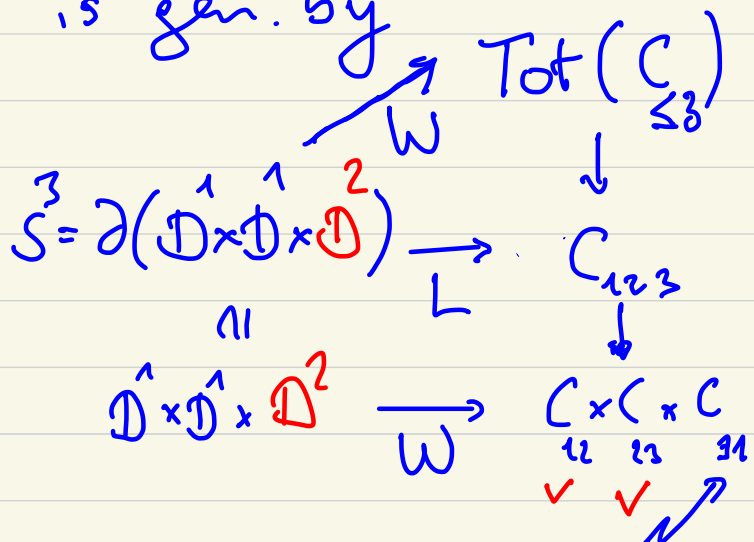 is gen. by
Tot(C≤3)
W
S³ = ∂(D¹×D¹×D²)
L
C₁₂₃
D¹×D¹×D²
W
C₁₂ × C₂₃ × C₃₁